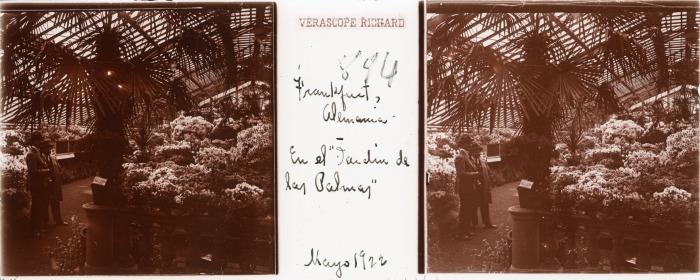 VÉRASCOPE RICHARD
894
Frankfurt,
Alemania.
En el "Jardin de
las Palmas"
Mayo 1922